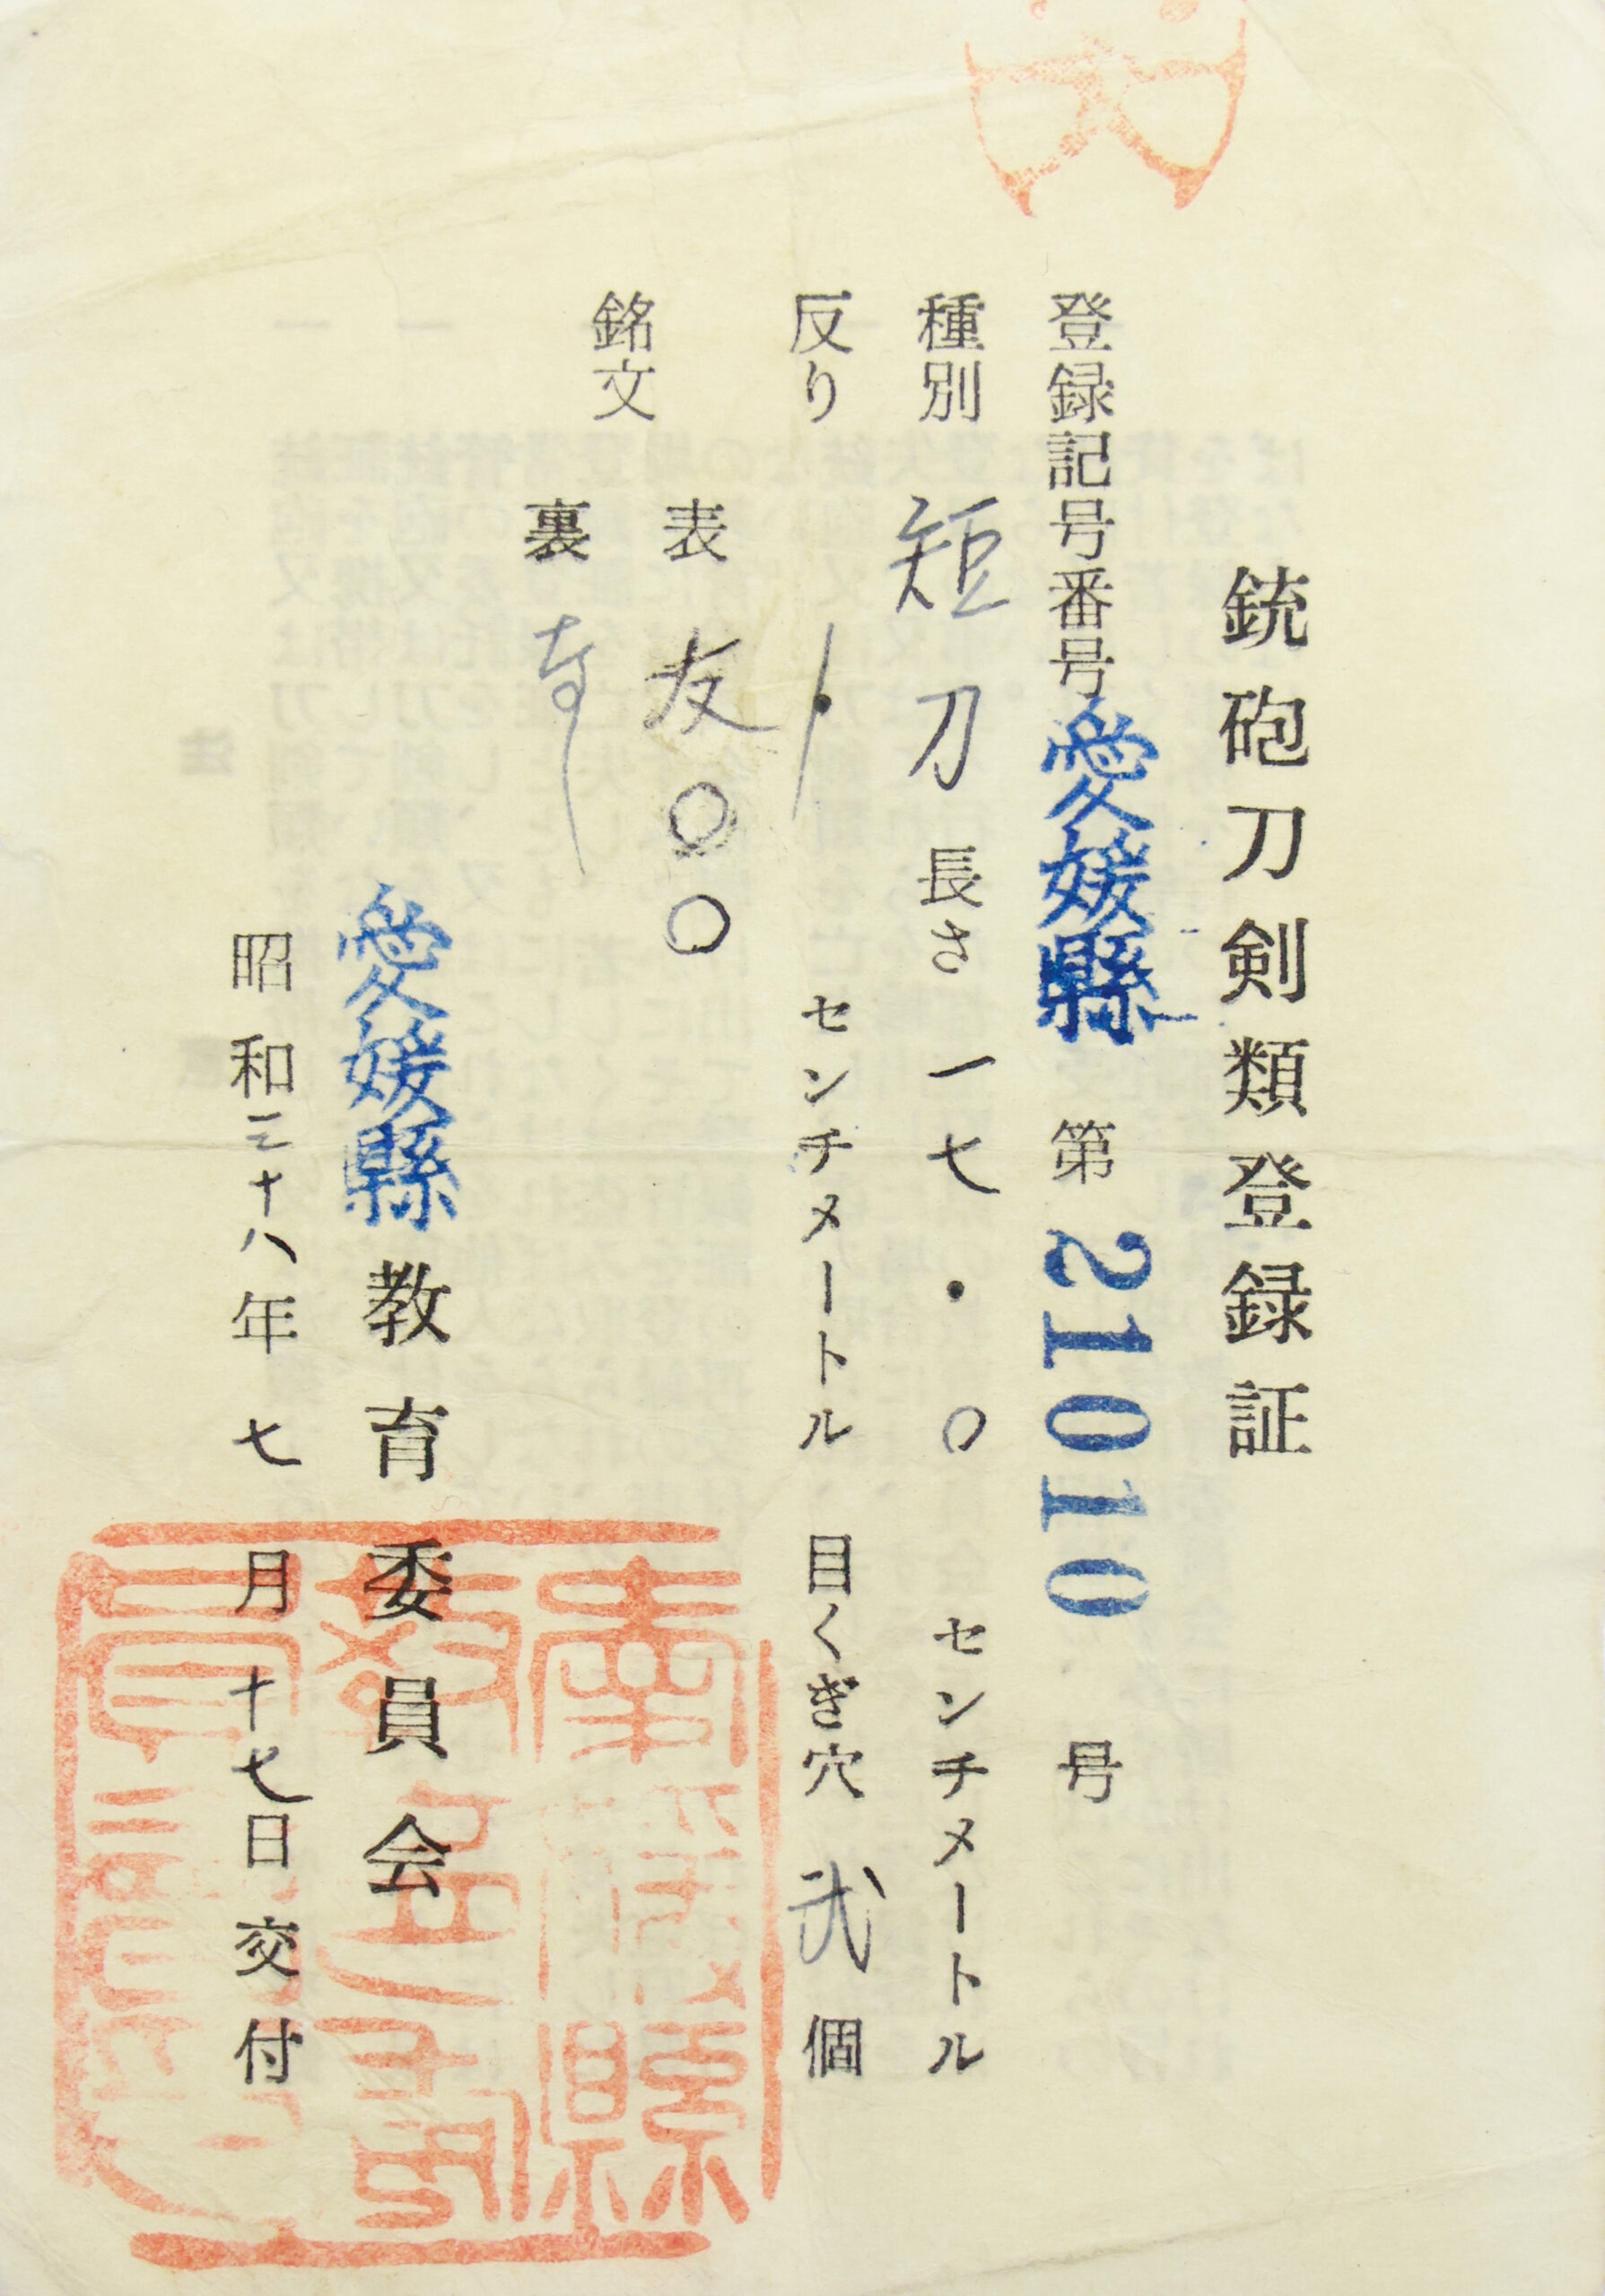 銃砲刀剣類登録証
登録記号番号愛媛縣 第21010号
種別 短刀 長さ 一七・〇 センチメートル
反り ・ センチメートル 目くぎ穴 弐 個
銘文 表 友〇〇
裏 なし
愛媛縣教育委員会
昭和三十八年七月十七日交付